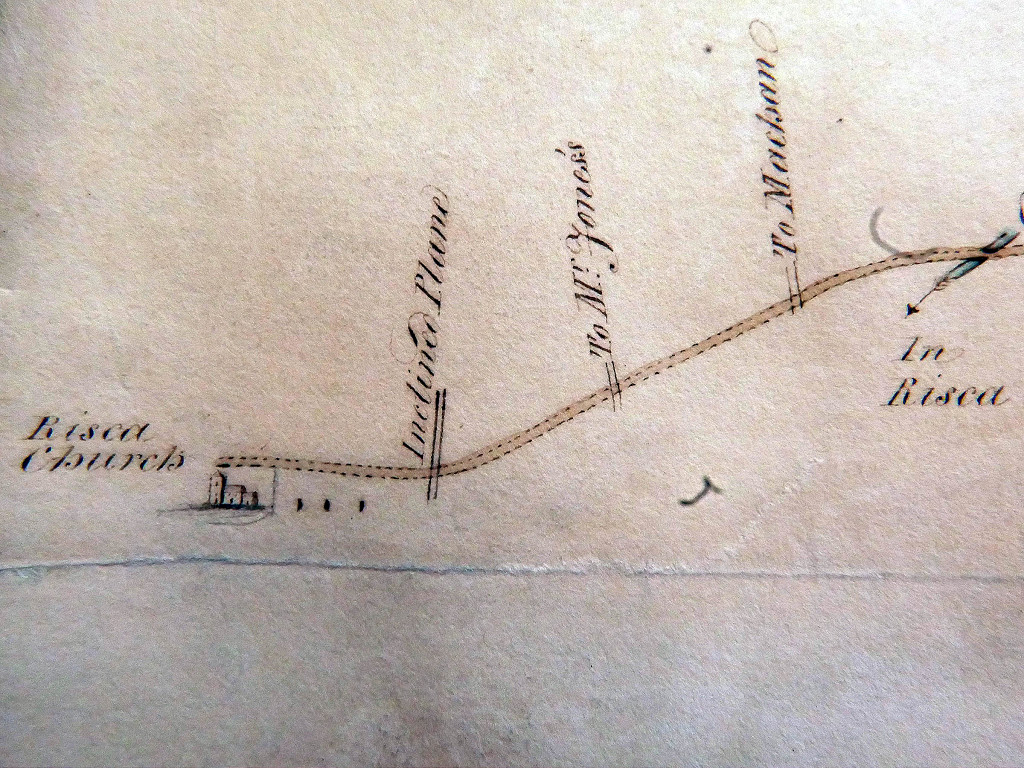 Risca
Church
Inclined Plane
To Mr. Jones's
To Machan
In
Risca